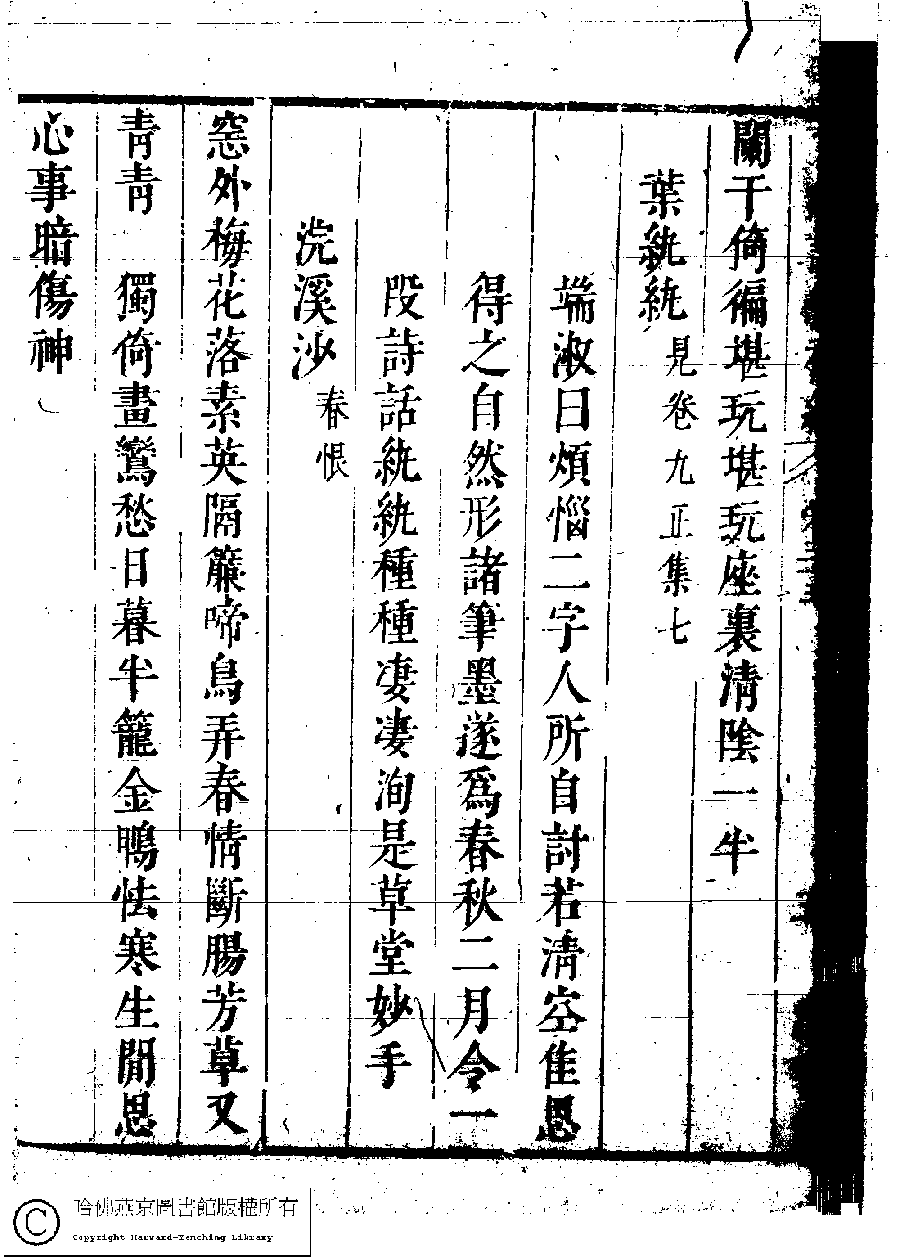 闌干倚徧堪玩堪玩座裏清陰一半
葉紈紈見卷九正集七
端淑曰煩惱二字人所自討若清空佳思
得之自然形諸筆墨遂爲春秋二月令一
段詩話紈紈種種凄凄洵是草堂妙手
浣溪沙春恨
窓外梅花落素英隔簾啼鳥弄春情斷腸芳草又
青青　獨倚畫鸞愁日暮半籠金鴨怯寒生閒思
心事暗傷神
哈佛燕京圖書館版權所有
Copyright Harvard-Yenching Library